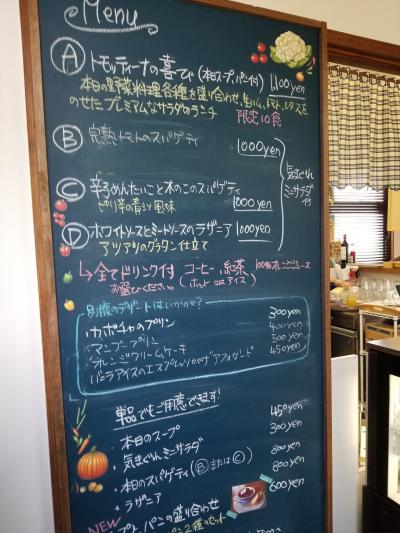 Menu
A トモッティーナの喜び(本日スープ、パン付) 1,100yen
本日の野菜料理各種を盛り合わせ、生ハム、トマト、レタスを
のせたプレミアムなサラダのランチ 限定10食
B 完熟トマトのスパゲティ 1000yen
C 辛子めんたいこと木のこのスパゲティ 1000yen
ピリ辛の青ジソ風味
気まぐれミニサラダ付
D ホワイトソースとミートソースのラザニア 1000yen
アツアツのグラタン仕立て
全てドリンク付 コーヒー、紅茶 100%オレンジジュース
お選びください (ホット or アイス)
別腹のデザートはいかが?
カボチャのプリン 300yen
マンゴープリン 400yen
オレンジクリームケーキ 500yen
バニラアイスのエスプレッソがけ アフォガード 450yen
単品でもご用意できます!
・本日のスープ 450yen
・気まぐれミニサラダ 300yen
・本日のスパゲティ(BまたはC) 800yen
・ラザニア 800yen
NEW
パンの盛り合わせ 600yen
パン2種のセット